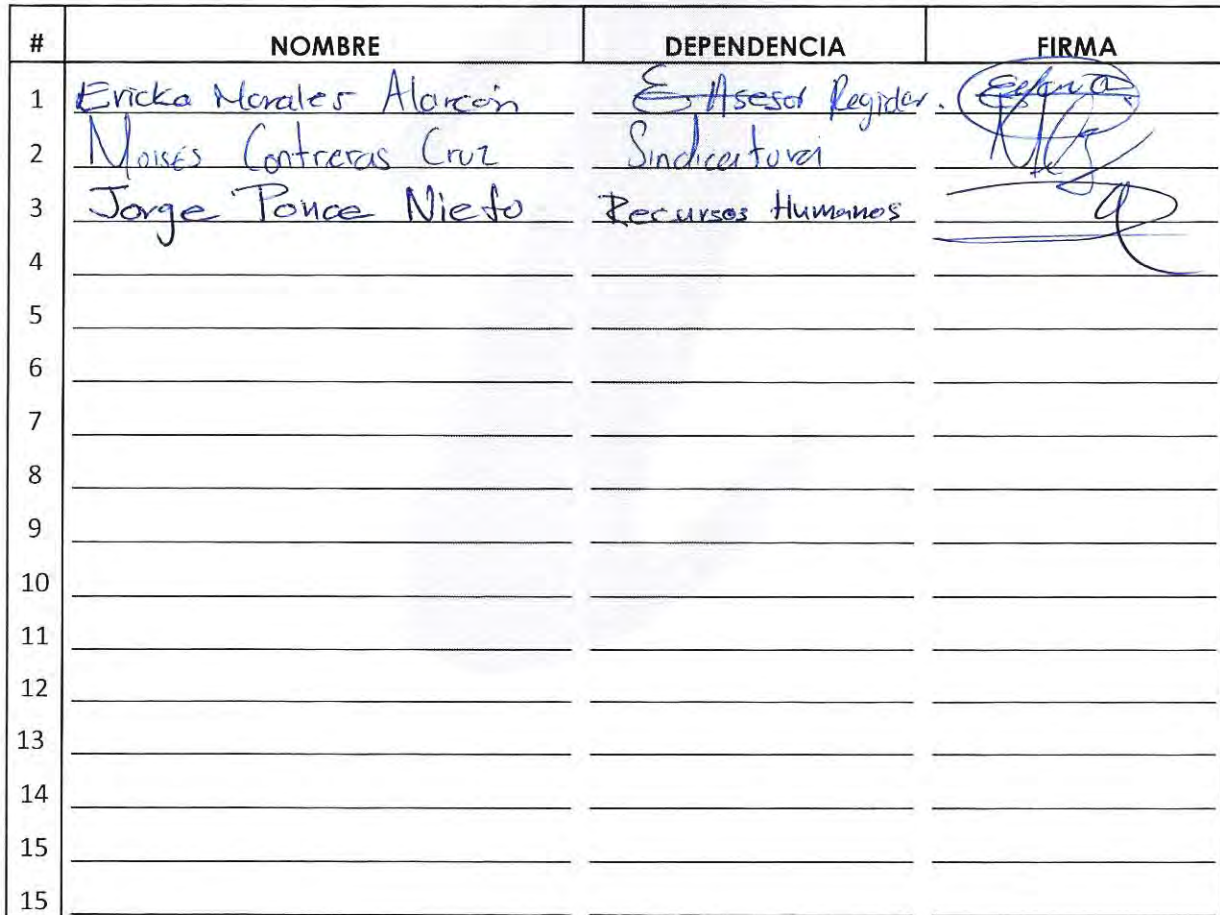 # NOMBRE DEPENDENCIA FIRMA
1 Ericka Morales Alarcón Asesor Regidor.
2 Moisés Contreras Cruz Sindicatura
3 Jorge Ponce Nieto Recursos Humanos
4
5
6
7
8
9
10
11
12
13
14
15
15